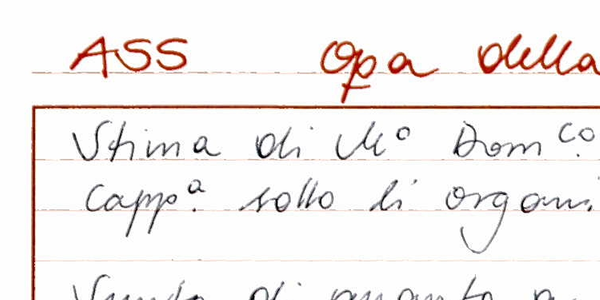 ASS Opa della
Stima di Mº Domco.
Cappª sotto li organi
di quanto